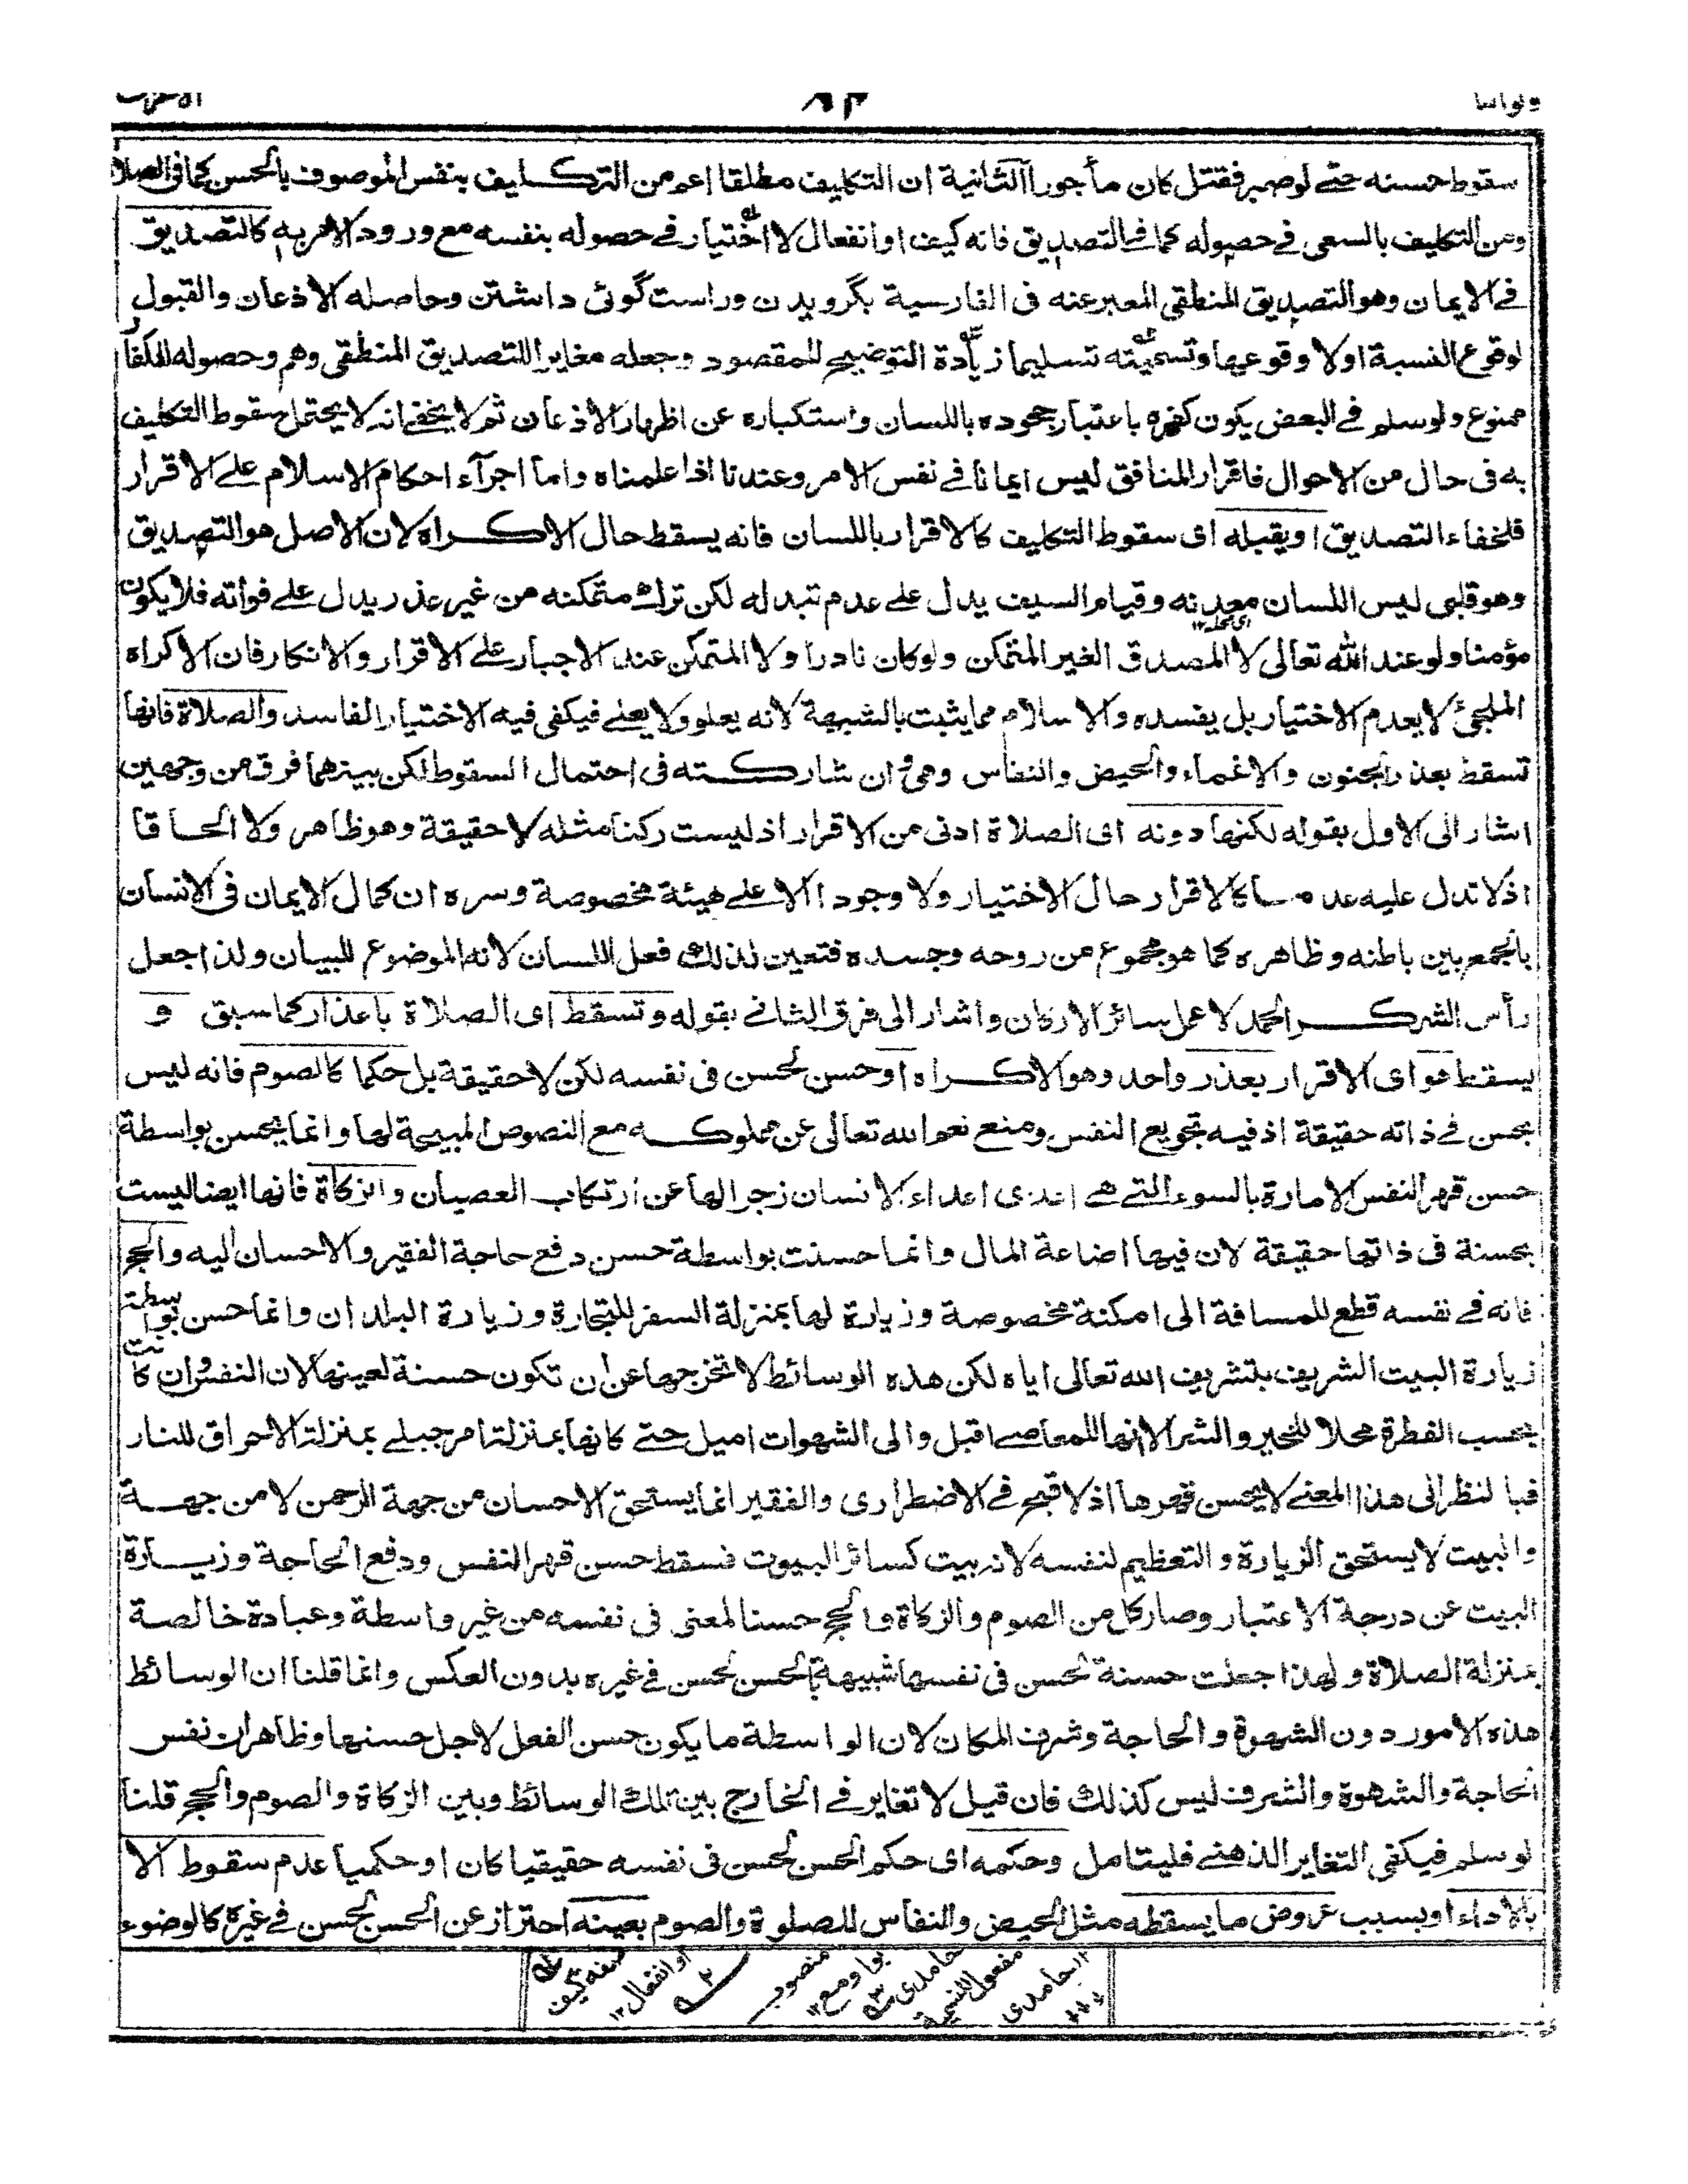 ٨٣
سقوط حسنه حتے لو صبر فقتل كان مأجورا الثانية ان التكليف مطلقا اعم من التكليف بنفس الموصوف بالحسن كما فى الصلا
ومن التكليف بالسعى فے حصوله كما فے التصديق فانه كيف او انفعال لا اختيار فے حصوله بنفسه مع ورود الامر به كالتصديق
فے الايمان وهو التصديق المنطقى المعبر عنه فى الفارسية بگرويدن وراست گوئى داشتن وحاصله الاذعان والقبول
لوقوع النسبة اولا وقوعها وتسميته تسليما زيادة التوضيح للمقصود وجعله مغايرا للتصديق المنطقى وهم وحصوله للكفار
ممنوع ولو سلم فے البعض يكون كفره باعتبار جحوده باللسان واستكباره عن اظهار الاذعان ثم لا يخفے انه لا يحتمل سقوط التكليف
به فى حال من الاحوال فاقرار المنافق ليس ايمانا فے نفس الامر وعندنا اذا علمناه واما اجرآء احكام الاسلام علے الاقرار
فلخفاء التصديق او يقبله اى سقوط التكليف كالاقرار باللسان فانه يسقط حال الاكراه لان الاصل هو التصديق
وهو قلبى ليس اللسان معدنه وقيام السيف يدل علے عدم تبدله لكن ترك متمكنه من غير عذر يدل علے فواته فلا يكون
اى محله ١٢
مؤمنا ولو عند الله تعالى لا المصدق الغير المتمكن ولو كان نادرا ولا المتمكن عند الاجبار علے الاقرار والانكار فان الاكراه
الملجئ لا يعدم الاختيار بل يفسده والاسلام مما يثبت بالشبهة لانه يعلو ولا يعلے فيكفى فيه الاختيار الفاسد والصلاة فانها
تسقط بعذر الجنون والاغماء والحيض والنفاس وهى وان شاركته فى احتمال السقوط لكن بينهما فرق من وجهين
اشار الى الاول بقوله لكنها دونه اى الصلاة ادنى من الاقرار اذ ليست ركنا مثله لا حقيقة وهو ظاهر ولا الحاقا
اذ لا تدل عليه عدما كالاقرار حال الاختيار ولا وجودا الا علے هيئة مخصوصة وسره ان كمال الايمان فى الانسان
بالجمع بين باطنه وظاهره كما هو مجموع من روحه وجسده فتعين لذلك فعل اللسان لانه الموضوع للبيان ولذا جعل
رأس الشكر الحمد لا عمل سائر الاركان واشار الى فرق الثانے بقوله وتسقط اى الصلاة باعذار كما سبق و
يسقط هو اى الاقرار بعذر واحد وهو الاكراه او حسن لحسن فى نفسه لكن لا حقيقة بل حكما كالصوم فانه ليس
بحسن فے ذاته حقيقة اذ فيه تجويع النفس ومنع نعم الله تعالى عن مملوكه مع النصوص المبيحة لها وانما يحسن بواسطة
حسن قهر النفس الامارة بالسوء التے هے اعدى اعداء الانسان زجرا لها عن ارتكاب العصيان والزكاة فانها ايضا ليست
بحسنة فى ذاتها حقيقة لان فيها اضاعة المال وانما حسنت بواسطة حسن دفع حاجة الفقير والاحسان اليه والحج
فانه فے نفسه قطع للمسافة الى امكنة مخصوصة وزيارة لها بمنزلة السفر للتجارة وزيارة البلدان وانما حسن بواسطة
زيارة البيت الشريف بتشريف الله تعالى اياه لكن هذه الوسائط لا تخرجها عن ان تكون حسنة لعينها لان النفس وان كانت
بحسب الفطرة محلا للخير والشر الا انها للمعاصے اقبل والى الشهوات اميل حتے كانها بمنزلة امر جبلے بمنزلة الاحراق للنار
فبالنظر الى هذا المعنے لا يحسن قهرها اذ لا قبح فے الاضطرارى والفقير انما يستحق الاحسان من جهة الرحمن لا من جهة
والبيت لا يستحق الزيارة والتعظيم لنفسه لانه بيت كسائر البيوت فسقط حسن قهر النفس ودفع الحاجة وزيارة
البيت عن درجة الاعتبار وصار كل من الصوم والزكاة والحج حسنا لمعنى فى نفسه من غير واسطة وعبادة خالصة
بمنزلة الصلاة ولهذا جعلت حسنة لحسن فى نفسها شبيهة بالحسن لحسن فے غيره بدون العكس وانما قلنا ان الوسائط
هذه الامور دون الشهوة والحاجة وشرف المكان لان الواسطة ما يكون حسن الفعل لاجل حسنها وظاهر ان نفس
الحاجة والشهوة والشرف ليس كذلك فان قيل لا تغاير فے الخارج بين تلك الوسائط وبين الزكاة والصوم والحج قلنا
لو سلم فيكفى التغاير الذهنے فليتامل وحكمه اى حكم الحسن لحسن فى نفسه حقيقيا كان او حكميا عدم سقوط الا
بالاداء او بسبب عروض ما يسقطه مثل الحيض والنفاس للصلوة والصوم بعينه احتراز عن الحسن لحسن فے غيره كالوضوء